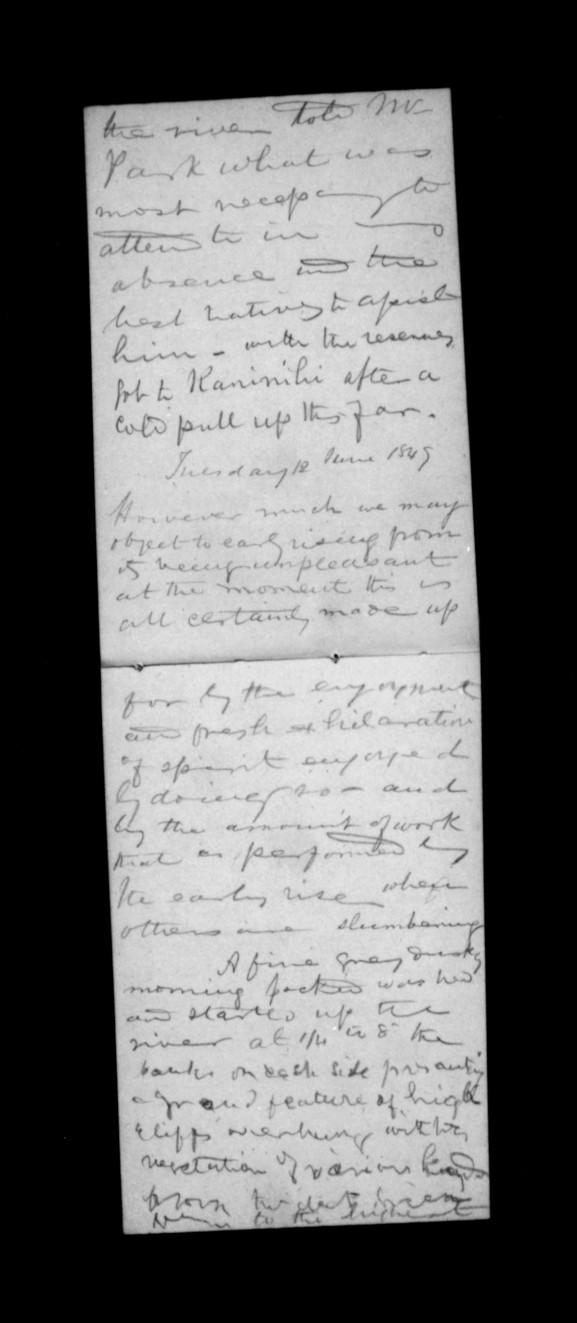 the river told Mr
Park what was
most necessary to
attend to in my
absence and the
best natives to assist
him - with the reserves
Got to Kaninihi after a
cold pull up this far.
Tuesday 12 June 1849
However much we may
object to early rising from
its being unpleasant
at the moment this is
all certainly made up
for by the enjoyment
and fresh exhilaration
of spirit enjoyed
by doing so - and
by the amount of work
that is performed by
the early riser when
others are slumbering
A fine grey dusky
morning packed washed
and started up the
river at 1/4 to 8 the
banks on each side presenting
a grand feature of high
cliffs overhung with
vegetation of various
from the dark green
to the highest